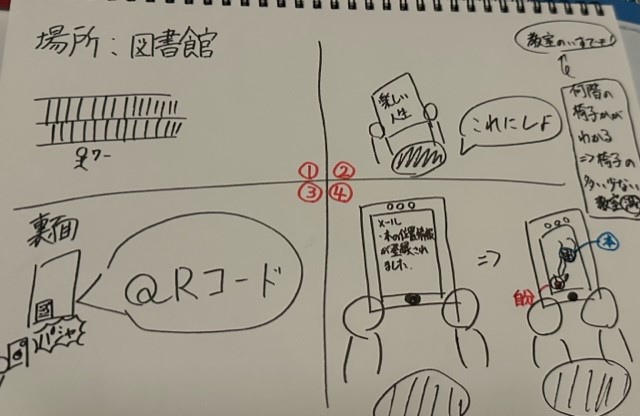 場所:図書館
①
②
③
④
楽しい
人生
これにしよ
教室のいすでも!
何階の
椅子かが
わかる
⇒椅子の
多い少ない
教室
裏面
QRコード
パシャ
メール
・本の位置情報
が登録され
ました。
⇒
本
自分